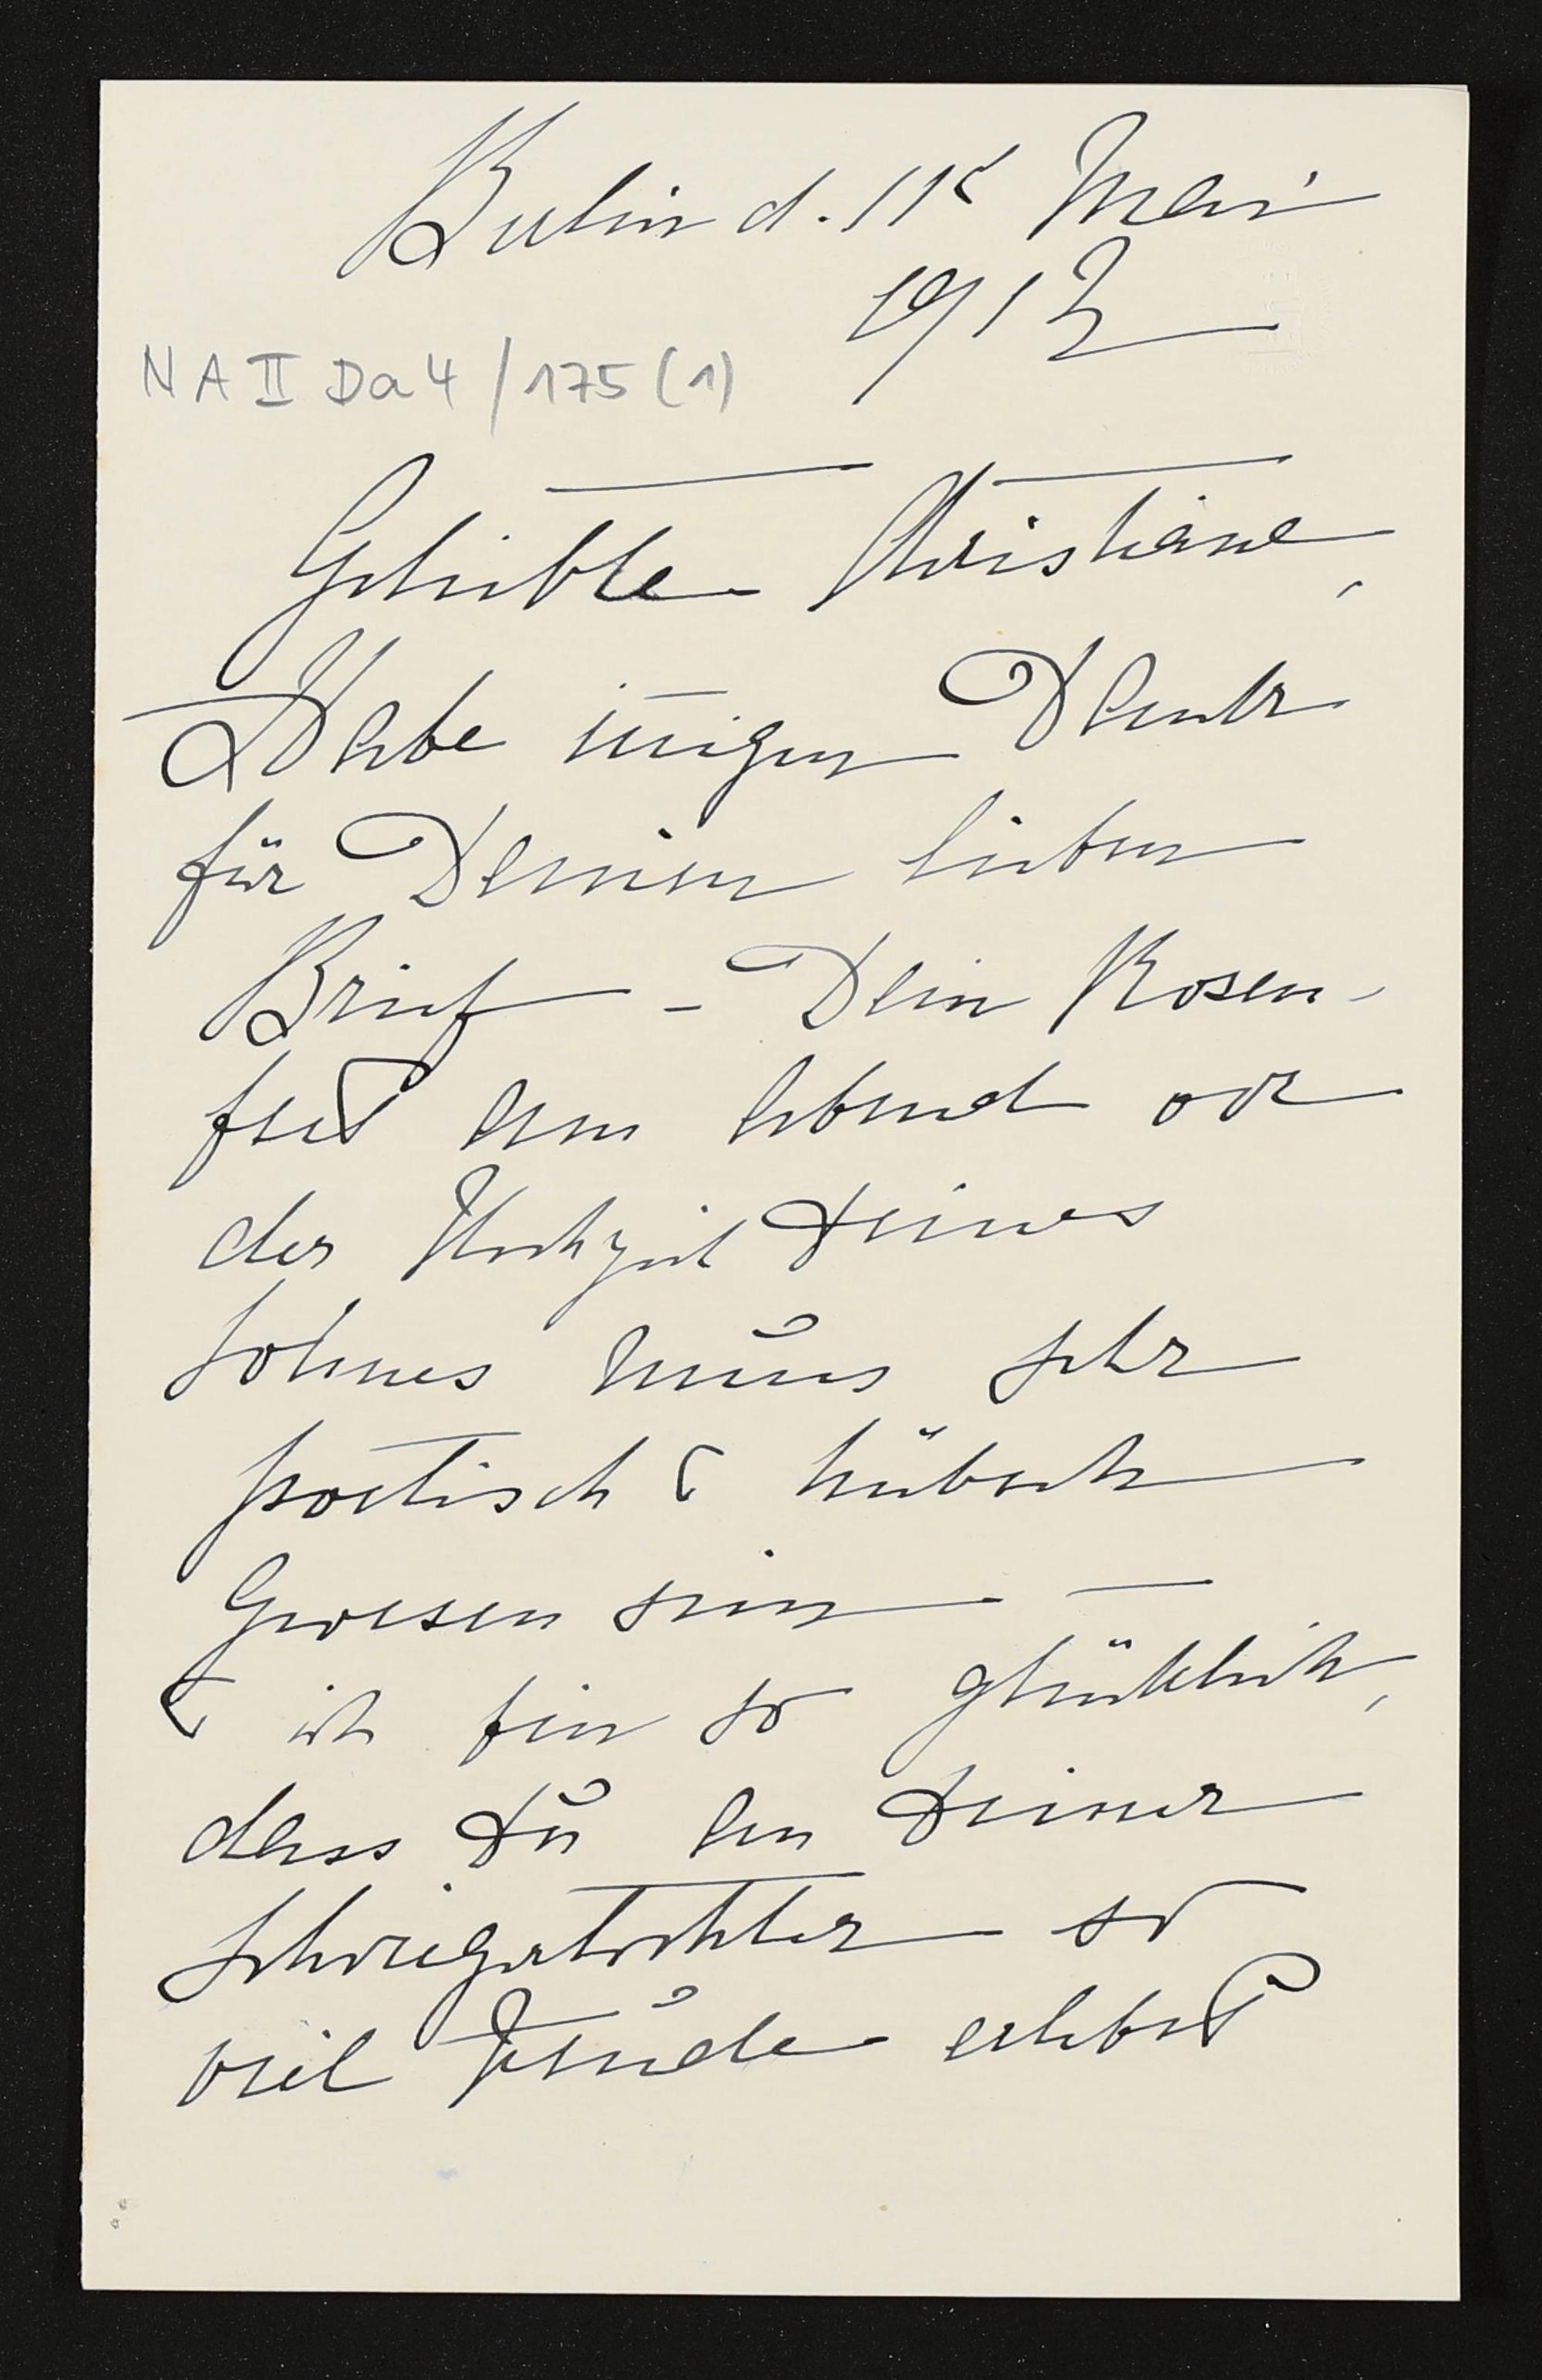 Berlin d. 11t Mai
1912
NA II Da 4/175 (1)
Geliebte Christiane,
Habe innigen Dank
für Deinen lieben
Brief - Dein Rosen-
fest am Abend vor
der Hochzeit Deines
Sohnes muss sehr
poetisch & hübsch
Gewesen sein —
& ich bin so glücklich,
dass Du an Deiner
Schwiegertochter so
viel Freude erlebst